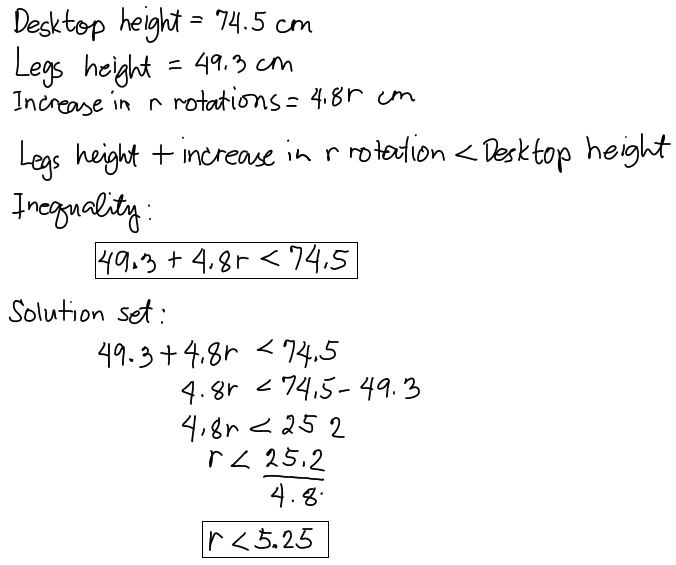 Desktop height = 74.5 cm
Legs height = 49.3 cm
Increase in r rotations = 4.8r cm
Legs height + increase in r rotation < Desktop height
Inequality:
49.3 + 4.8r < 74.5
Solution set:
49.3 + 4.8r < 74.5
4.8r < 74.5 - 49.3
4.8r < 25 2
r < 25.2
4.8
r < 5.25